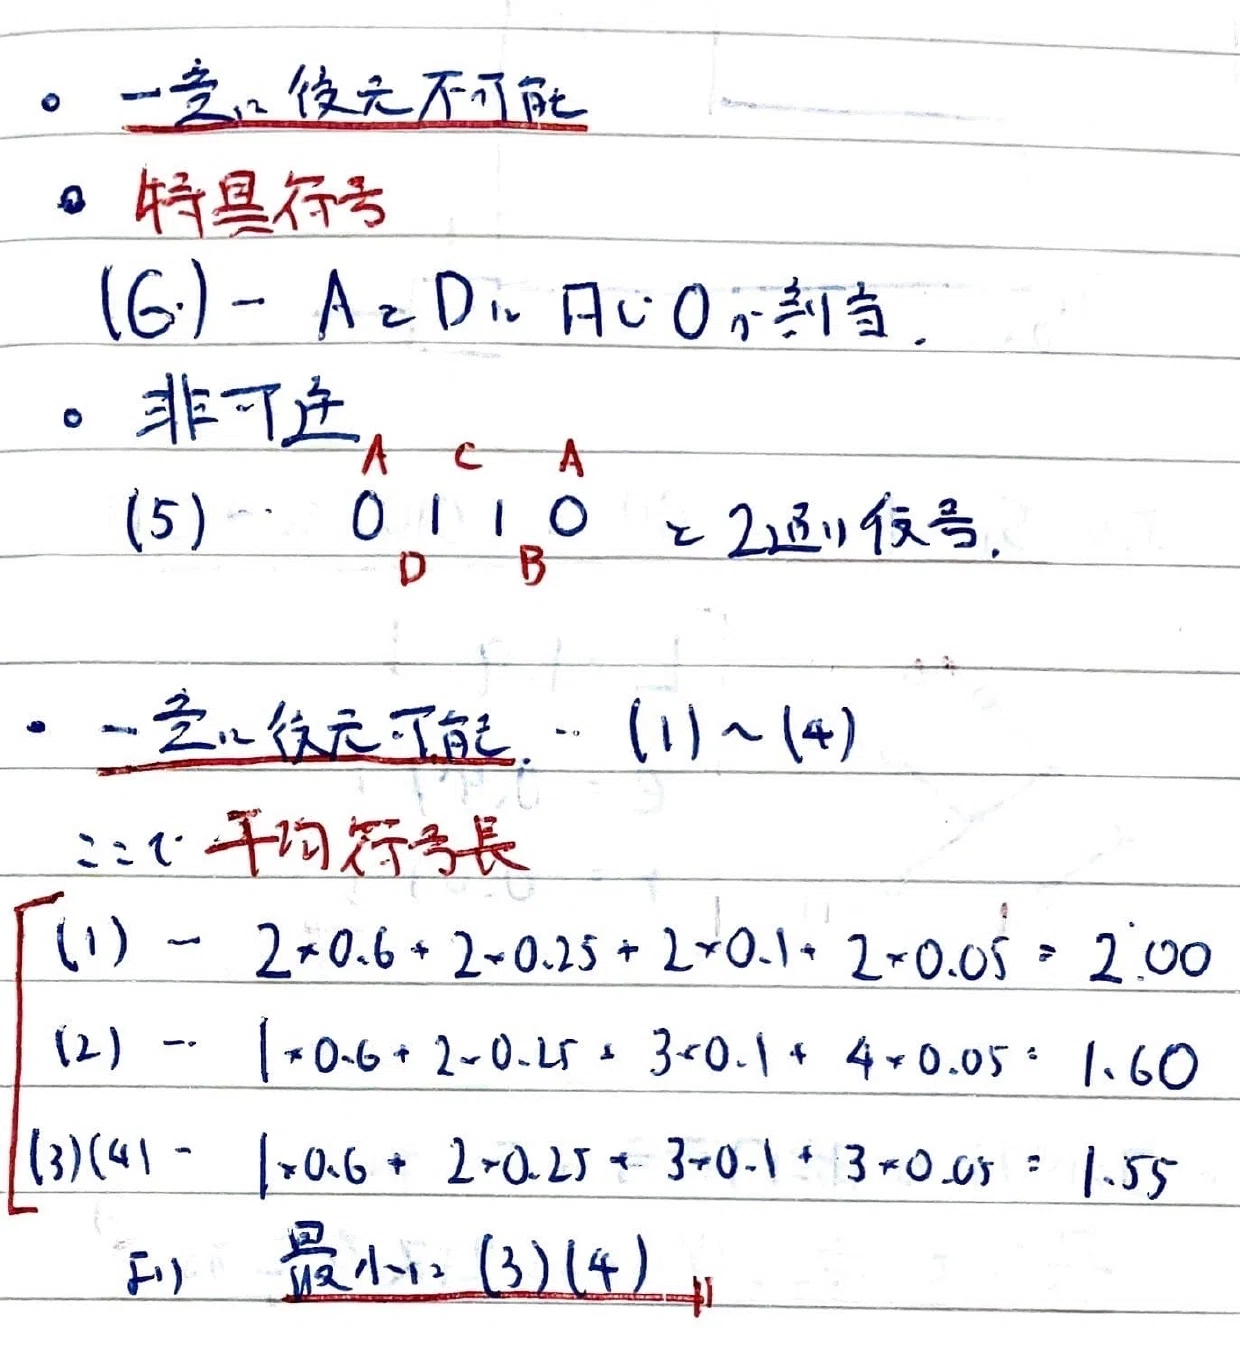 。一意に復元不可能
。特異符号
(6) - AとDに同じ0が割当.
。非可逆
A C A
(5) … 0 1 1 0 と2通り復号.
D B
・一意に復元可能. … (1) ~ (4)
ここで 平均符号長
(1) - 2×0.6 + 2×0.25 + 2×0.1 + 2×0.05 = 2.00
(2) … 1×0.6 + 2×0.25 + 3×0.1 + 4×0.05 = 1.60
(3)(4) - 1×0.6 + 2×0.25 + 3×0.1 + 3×0.05 = 1.55
より 最小は (3)(4)